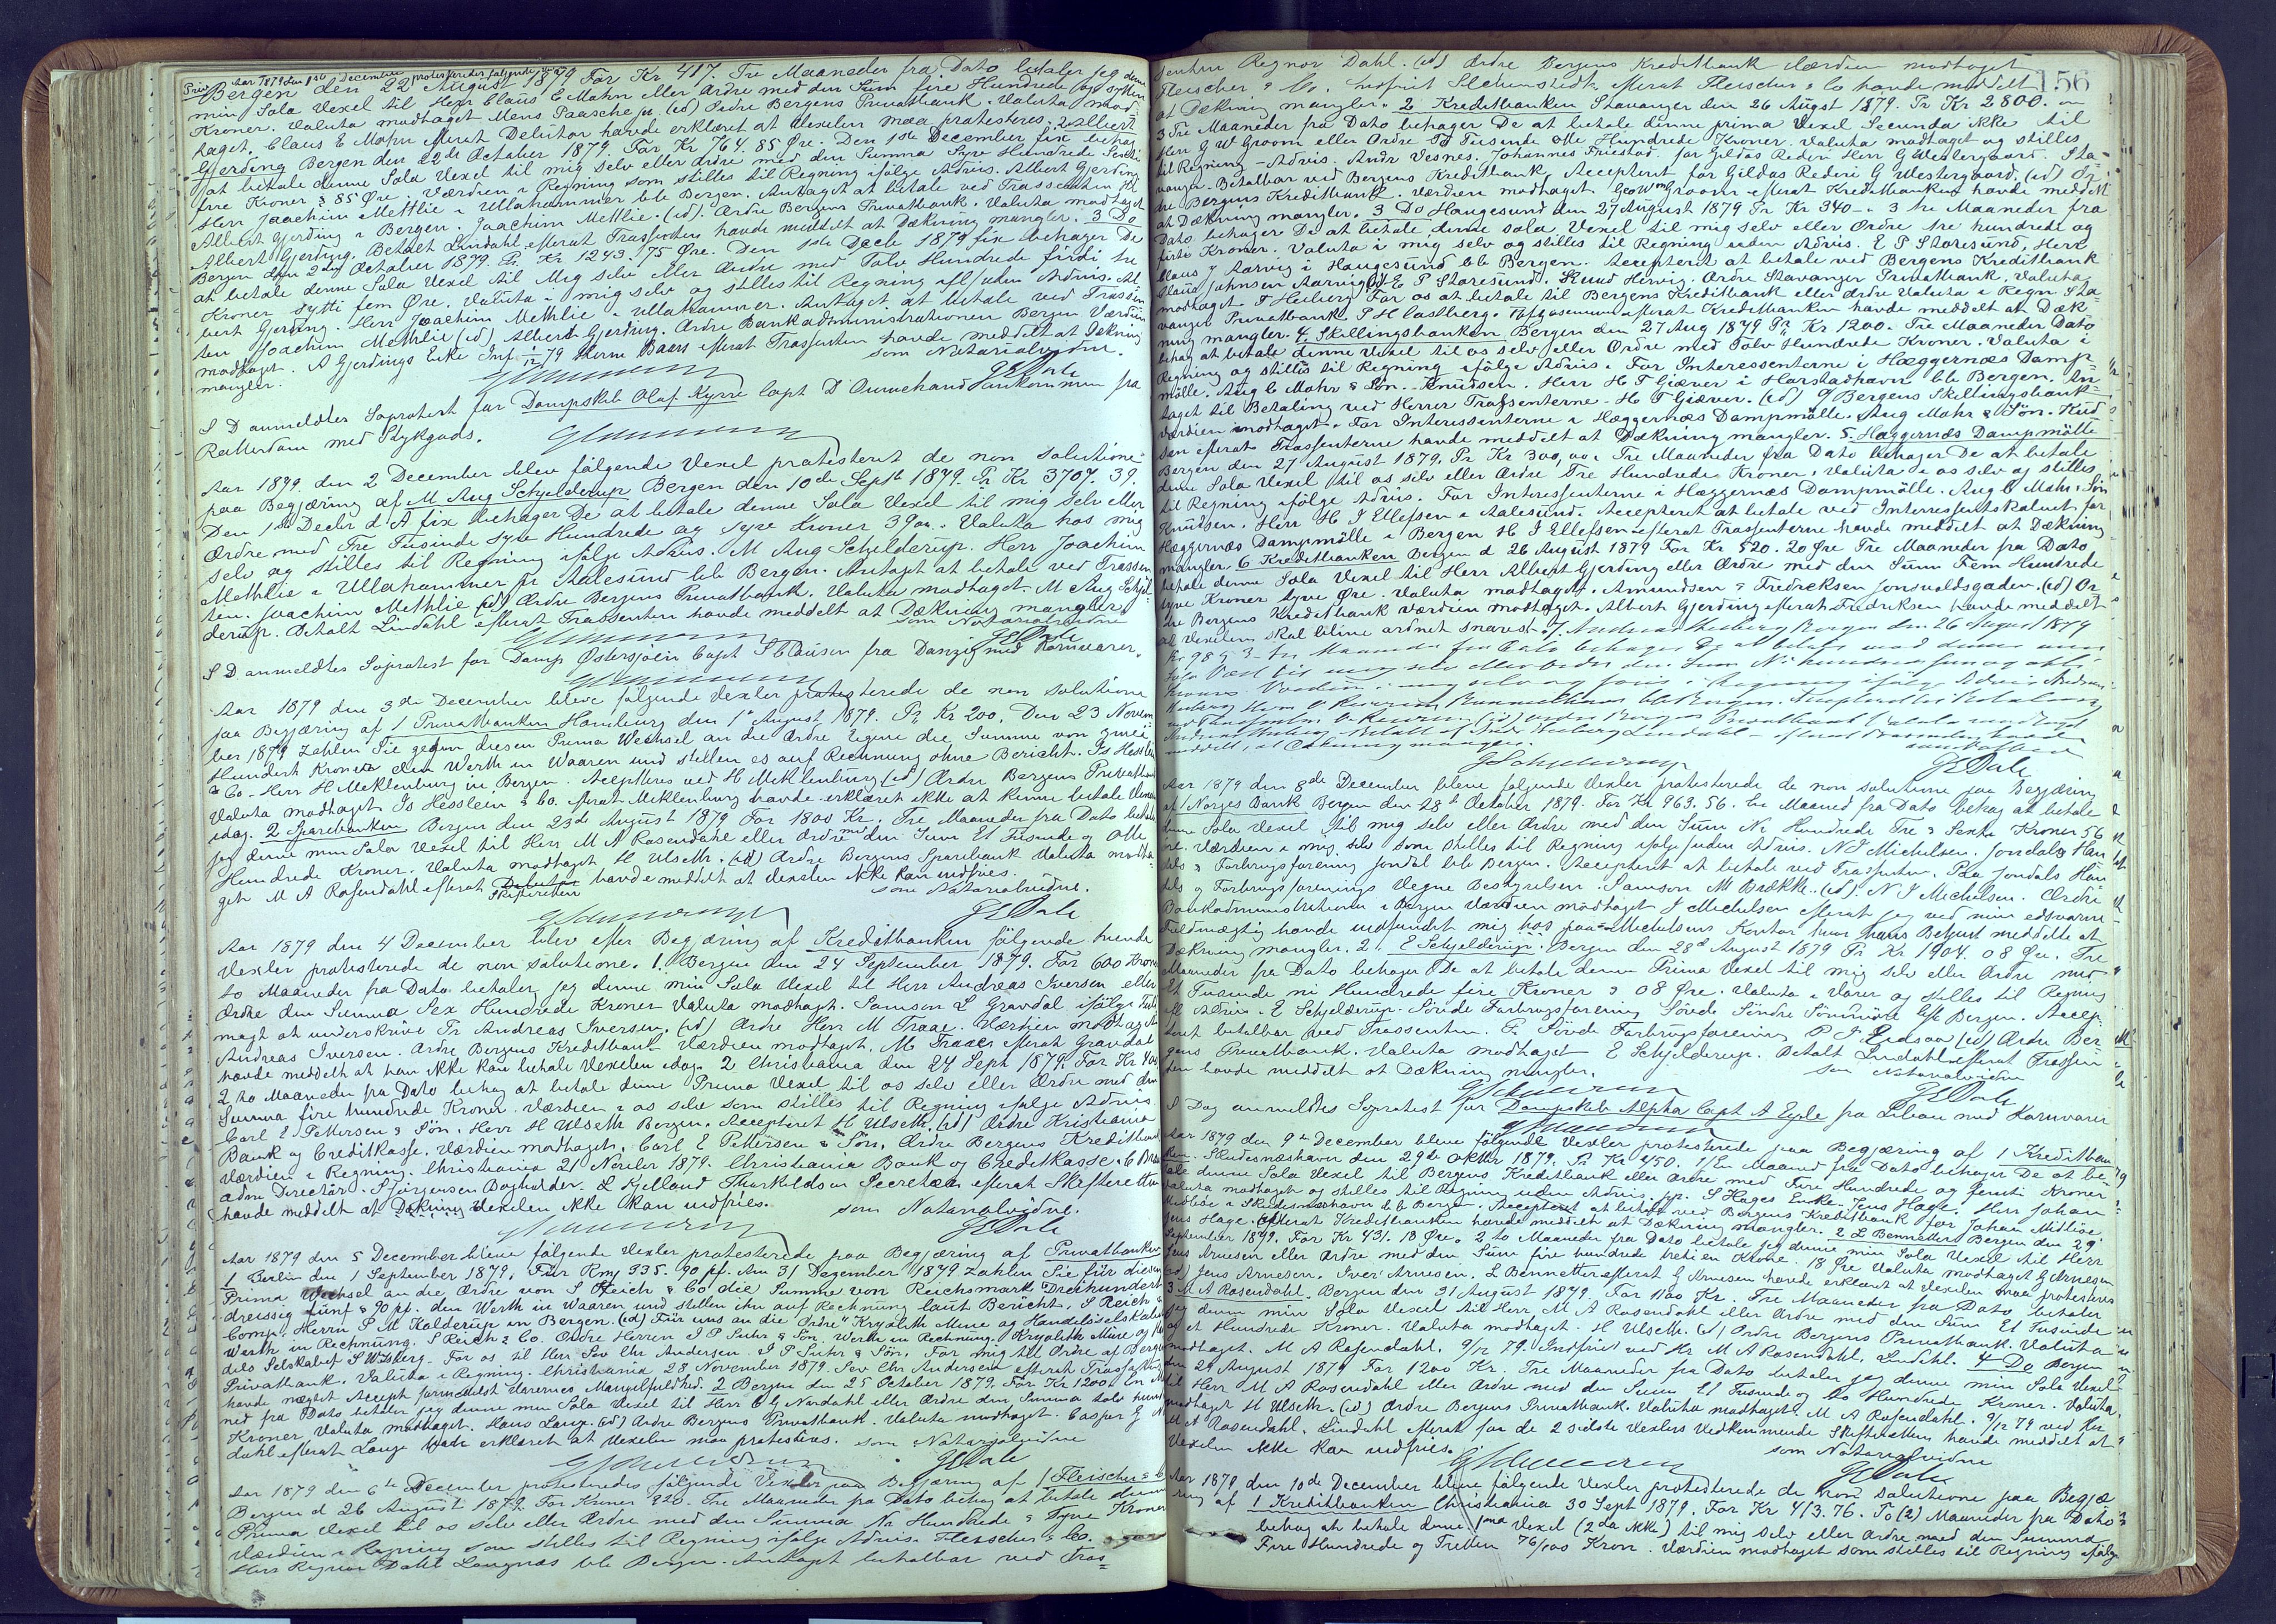 Aar 1879 den 1ste December protesteredes følgende
Bergen den 22 August 1879 For Kr 417. Tre Maaneder fra Dato betaler jeg denne
min Sola Vexel til Herr Claus E Mohn eller Ordre med den Sum fire Hundrede og sytten
Kroner. Valuta modtaget Mens Paasche jr. (ed) Ordre Bergens Privatbank. Valuta mod-
taget. Claus E Mohn efterat Debitor havde erklæret at Vexelen maa protesteres. 2 Albert
Gjerding Bergen den 22de October 1879. For Kr 764. 85 Øre. Den 1ste December fix behag
at betale denne Sola Vexel til mig selv eller ordre med den Summa Syv Hundrede Sexti
fire Kroner & 85 Øre. Værdien i Regning som stilles til Regning ifølge Advis. Albert Gjerding
Herr Joachim Methlie i Ullahammer bb Bergen. Antaget at betale ved Trassenten Hr
Albert Gjerding i Bergen. Joachim Methlie. (ed). Ordre Bergens Privatbank. Valuta modtaget
Albert Gjerding. Betalt Lindahl efterat Trassenten havde meddelt at Dækning mangler. 3 Do
Bergen den 2den October 1879. Pr. Kr 1243. 75 Øre. Den 1ste Decbr 1879 fix behager De
at betale denne Sola Vexel til Mig selv eller Ordre med Tolv Hundrede firti tre
Kroner sytti fem Øre. Valuta i mig selv og stilles til Regning ifl/uden Advis. Al-
bert Gjerding. Herr Joachim Methlie i Ullahammer. Antaget at betale ved Trassen
ten Joachim Methlie (ed) Albert Gjerding. Ordre Bankadministrationen Bergen Værdien
modtaget. A Gjerdings Enke Inf. 1/12 79 Herm Baars efterat Trassenten havde meddelt at Dækning
mangler. som Notarialvidne.
GEDale
S D anmeldtes Søprotest for Dampskib Olaf Kyrre Capt D Ouwehand ankommen fra
Rotterdam med Stykgods.
Aar 1879 den 2 December blev følgende Vexel protesteret de non solutione
paa Begjæring af M Aug Schjelderup Bergen den 10de Septb 1879. Pr. Kr 3707. 39.
Den 1ste Decbr d A fix behager De at betale denne Sola Vexel til mig selv eller
Ordre med Tre Tusinde syv Hundrede og syv Kroner 39 Ør. Valuta hos mig
selv og stilles til Regning ifølge Advis. M Aug Schjelderup. Herr Joachim
Methlie i Ullahammer pr Aalesund bb Bergen. Antaget at betale ved Trassen
ten. Joachim Methlie (ed) Ordre Bergens Privatbank. Valuta modtaget. M Aug Schjel-
derup. Betalt Lindahl efterat Trassenten havde meddelt at Dækning mangler
som Notarialvidne
GEDale
S D. anmeldtes Søprotest for Damp Østersjøen Capt S Clausen fra Danzig med Kornvarer.
Aar 1879 den 3de December bleve følgende Vexler protesterede de non solutione
paa Begjæring af 1 Privatbanken Hamburg den 1e August 1879. Pr. Kr 200. Den 23 Novem
ber 1879 zahlen Sie gegen diesen Prima Wechsel an die Ordre Eigene die Summe von zwei
Hundert Kronen den Werth in Waaren und stellen es auf Rechnung ohne Bericht. Is Hesslein
& Co. Herr H Meklenburg in Bergen. Accepteres ved H Meklenburg (ed) Ordre Bergens Privatbank
Valuta modtaget Is Hesslein & Co. efterat Meklenburg havde erklæret ikke at kunne betale Vexelen
idag. 2 Sparebanken Bergen den 23de August 1879 For 1800 Kr. Tre Maaneder fra Dato betaler
jeg denne min Sola Vexel til Herr M A Rosendahl eller Ordre med den Sum Et Tusinde og Otte
Hundrede Kroner. Valuta modtaget H Ulseth. (ed) Ordre Bergens Sparebank Valuta modta-
get M A Rosendahl efterat Debitor Skifteretten havde meddelt at Vexelen ikke kan indfries.
som Notarialvidne.
GEDale
Aar 1879 den 4 December blev efter Begjæring af Kreditbanken følgende tvende
Vexler protesterede de non solutione. 1. Bergen den 24 September 1879. For 600 Kroner
to Maaneder fra Dato betaler jeg denne min Sola Vexel til Herr Andreas Iversen eller
Ordre den Summa Sex Hundrede Kroner Valuta modtaget. Samson L Gravdal ifølge Fuld
magt at underskrive Pr Andreas Iversen. (ed) Ordre Herr M Traae. Værdien modtaget
Andreas Iversen. Ordre Bergens Kreditbank Værdien modtaget. M Traae efterat Gravdal
havde meddelt at han ikke kan betale Vexelen idag. 2 Christiania den 24 Sept 1879. For Kr 400
2 to Maaneder fra Dato behag at betale denne Prima Vexel til os selv eller Ordre med den
Summa fire hundrede Kroner. Værdien i os selv som stilles til Regning ifølge Advis
Carl E Pettersen & Søn. Herr H Ulseth Bergen. Accepteret H Ulseth. (ed) Ordre Kristiania
Bank og Creditkasse. Værdien modtaget. Carl E Pettersen & Søn. Ordre Bergens Kreditbank
Værdien i Regning. Christiania 21 Novber 1879. Christiania Bank og Creditkasse.
adm Directør. S Jørgensen Bogholder. L Kielland Thorkildsen Secretær efterat Skifteretten
havde meddelt at Dækning Vexelen ikke kan indfries. som Notarialvidne.
GEDale
Aar 1879 den 5 December bleve følgende Vexler protesterede paa Begjæring af Privatbanken
1 Berlin den 1 September 1879. Für Rmk 335. 90 pf. Am 31 Dezember 1879 zahlen Sie für diesen
Prima Wechsel an die Ordre von S Reich & Co die Summe von Reichsmark Dreihundert
dreissig fünf & 90 pf. den Werth in Waaren und stellen ihn auf Rechnung laut Bericht. S Reich &
Comp. Herrn S M Kalderup in Bergen. (ed) Für uns an die Ordre "Kryolith Mine og Handelsselskabet
Werth in Rechnung. S Reich & Co. Ordre Herren I P Suhr & Søn. Werth in Rechnung. Kryolith Mine og Han
dels Selskabet S Wisberg. For os til Herr Sov Chr Andersen. I P Suhr & Søn. For mig til Ordre af Bergens
Privatbank. Valuta i Regning. Christiania 28 November 1879. Sov Chr Andersen efterat Trassaten
havde nægtet Accept formedelst Varernes Mangelfuldhed. 2 Bergen den 25 October 1879. For Kr 1200. En Maa
ned fra Dato betaler jeg denne min Sola Vexel til Herr C G Nordahl eller Ordre den Summa tolv hundrede
Kroner Valuta modtaget. Hans Lange. (ed) Ordre Bergens Privatbank. Valuta modtaget. Casper G Nor
dahl efterat Lange havde erklæret at Vexelen maa protesteres. som Notarialvidne
GEDale
Aar 1879 den 6te December protesteredes følgende Vexler paa Begjæring af 1 Fleischer & Co
Bergen d 26 August 1879. For Kroner 920. Tre Maaneder fra Dato behag at betale denne
Prima Vexel til os selv eller Ordre med den Summa Ni Hundrede & Tyve Kroner
Værdien i Regning som stilles til Regning ifølge Advis. Fleischer & Co.
Herr Regnor Dahl Langnæs bb Bergen. Antaget betalbar ved Tras=
156
senten Regnor Dahl. (ed) Ordre Bergens Kreditbank Værdien modtaget
Fleischer & Co. efterat Fleischer & Co havde meddelt
at Dækning mangler. 2 Kreditbanken Stavanger den 26 August 1879. Pr Kr 2800.
3 Tre Maaneder fra Dato behager De at betale denne prima Vexel Secunda ikke til
Herr G W Groom eller Ordre To Tusinde Otte Hundrede Kroner. Valuta modtaget og stilles
til Regning - Advis. Andr Vesnes. Johannes Friestad for Gildas Rederi Herr G Westergaard. Sta-
vanger. Betalbar ved Bergens Kreditbank, Accepteret for Gildas Rederi G Westergaard, (ed) Or-
dre Bergens Kreditbank. Værdien modtaget. Geo Wm Groom efterat Kreditbanken havde meddelt
at Dækning mangler. 3 Do Haugesund den 27 August 1879 Pr Kr 340 -. 3 tre Maaneder fra
Dato behager De at betale denne sola Vexel til mig selv eller Ordre tre hundrede og
firti Kroner. Valuta i mig selv og stilles til Regning uden Advis. E P Storesund, Herr
Claus J Aarvig i Haugesund bb Bergen. Accepteret at betale ved Bergens Kreditbank
Claus Johnsen Aarvig (ed) E P Storesund. Knud Hervig. Ordre Stavanger Privatbank. Valuta
modtaget T Heiberg. For os at betale til Bergens Kreditbank eller Ordre Valuta i Regn. Sta-
vanger Privatbank. P H Castberg. efterat Kreditbanken havde meddelt at Dæk
ning mangler. 4. Skillingsbanken Bergen den 27 Aug 1879 Pr. Kr 1200. Tre Maaneder Dato
behag at betale denne Vexel til os selv eller Ordre med Tolv Hundrede Kroner. Valuta i
Regning og stilles til Regning ifølge Advis. For Interessenterne i Hæggernæs Damp-
mølle. Aug C Mohr & Søn. Knudsen. Herr H T Giæver i Harstadhavn bb Bergen. An-
taget til Betaling ved Herrer Trassenterne. H T Giæver. (ed) Bergens Skillingsbank
Værdien modtaget. For Interessenterne i Hæggernæs Dampmølle. Aug Mohr & Søn. Knud
sen efterat Trassenterne havde meddelt at Dækning mangler. 5. Hæggernæs Dampmølle
Bergen den 27 August 1879. Pr Kr 300,00. Tre Maaneder fra Dato behager De at betale
denne Sola Vexel til os selv eller Ordre Tre Hundrede Kroner. Valuta i os selv og stilles
til Regning ifølge Advis. For Interessenterne i Hæggernæs Dampmølle. Aug C Mohr & Søn
Knudsen. Herr H J Ellefsen i Aalesund. Accepteret at betale ved Interessentskabet for
Hæggernæs Dampmølle i Bergen H J Ellefsen efterat Trassenterne havde meddelt at Dækning
mangler. 6 Kreditbanken Bergen d 26 August 1879 For Kr 520. 20 Øre Tre Maaneder fra Dato
betale denne Sola Vexel til Herr Albert Gjerding eller Ordre med den Sum Fem Hundrede
tyve Kroner tyve Øre. Valuta modtaget. Amundsen & Fredriksen Jonsvoldsgaden. (ed) Or
dre Bergens Kreditbank Værdien modtaget. Albert Gjerding efterat Fredriksen havde meddelt
at Vexelen skal blive ordnet snarest. 7. Andreas Heiberg Bergen den 26 August 1879
Kr 985 3 tre Maaneder fra Dato behager De at betale mod denne min
Sola Vexel til mig selv eller Ordre den Sum
meddelt, at Dækning mangler.
GEDale
Aar 1879 den 8de December bleve følgende Vexler protesterede de non solutione paa Begjæring
af 1 Norges Bank Bergen den 28de October 1879. For Kr 963. 56. En Maaned fra Dato behag at betale
denne Sola Vexel til mig selv eller Ordre med den Sum Ni Hundrede Tre & Sexti Kroner 56
Øre. Værdien i mig selv som stilles til Regning ifølge/uden Advis. N J Michelsen. Jondals Han
dels & Forbrugsforening Jondal bb Bergen. Accepteret at betale ved Trassenten. Paa Jondals Han
dels og Forbrugsforenings Vegne Bestyrelsen. Samson M Brække. (ed). N J Michelsen. Ordre
Bankadministrationen i Bergen Værdien modtaget J Michelsen efterat jeg ved min edsvorne
Fuldmægtig havde indfundet mig hos paa Michelsens Kontor hvor hans Betjent meddelte at
Dækning mangler. 2. E Schjelderup. Bergen den 28d August 1879 Pr Kr 1904. 08 Øre. Tre
Maaneder fra Dato behager De at betale denne Prima Vexel til mig selv eller Ordre med
Et Tusinde ni Hundrede fire Kroner & 08 Øre. Valuta i Varer og stilles til Regning
ifl Advis. E Schjelderup. Søvde Forbrugsforening Søvde Søndre Søndmøre bb Bergen. Accep-
teret betalbar ved Trassenten. Pr. Søvde Forbrugsforening P J Eidsaa (ed) Ordre Ber
gens Privatbank. Valuta modtaget E Schjelderup. Betalt Lindahl efterat Trassen
ten havde meddelt at Dækning mangler. som Notarialvidne
GEDale
I Dag anmeldtes Søprotest for Dampskib Alpha Capt A Eyde fra Libau med Kornvarer
Aar 1879 den 9de December bleve følgende Vexler protesterede paa Begjæring af 1 Kreditban
ken. Skudesnæshavn den 29de Oktbr 1879. Pr Kr 450. 1/En Maaned fra Dato behager De at be-
tale denne Sola Vexel til Bergens Kreditbank eller Ordre med Fire Hundrede og femti Kroner
Valuta modtaget og stilles til Regning uden Advis. pp. S Hages Enke. Jens Hage. Herr Johan
Midbøe i Skudesnæshavn bb Bergen. Accepteret at betale ved Bergens Kreditbank for Johan Midbøe.
Jens Hage. efterat Kreditbanken havde meddelt at Dækning mangler. 2 L Bennetter Bergen den 29
September 1879. For Kr 431. 18 Øre. 2 to Maaneder fra Dato betale jeg denne min Sola Vexel til Herr
Jens Arnesen eller Ordre med den Sum fire hundrede treti en Krone. 18 Øre Valuta modtaget G Arnesen
(ed) Jens Arnesen. Iver Arnesen. L Bennetter efterat G Arnesen havde erklæret at Vexelen maa protesteres
3 M A Rosendahl. Bergen den 21 August 1879. For 1100 Kr. Tre Maaneder fra Dato betaler
jeg denne min Sola Vexel til Herr M A Rosendahl eller Ordre med den Sum Et Tusinde
og et Hundrede Kroner. Valuta modtaget H Ulseth. (ed) Ordre Bergens Privatbank. Valuta
modtaget. M A Rosendahl. 9/12 79. Indfriet ved Hr M A Rosendahl. Lindahl. 4 Do Bergen
den 21 August 1879 For 1200 Kr. Tre Maaneder fra Dato betaler jeg denne min Sola Vexel
til Herr M A Rosendahl eller Ordre med den Sum Et Tusinde og to Hundrede Kroner. Valuta
modtaget H Ulseth. (ed) Ordre Bergens Privatbank. Valuta modtaget. M A Rosendahl. 9/12 79 ved Hr
M A Rosendahl. Lindahl efterat for de 2 sidste Vexlers Vedkommende Skifteretten havde meddelt at
Vexelen ikke kan indfries. som Notarialvidne
GEDale
Aar 1879 den 10de December bleve følgende Vexler protesterede de non solutione paa Begjæ
ring af 1 Kreditbanken Christiania 30 Sept 1879. For Kr 413. 76. To (2) Maaneder fra Dato
behag at betale denne 1ma Vexel (2da ikke) til mig selv eller Ordre med den Summa
Fire Hundrede og Tretten 76/100 Kroner. Værdien modtaget som stilles til Regning ifølge